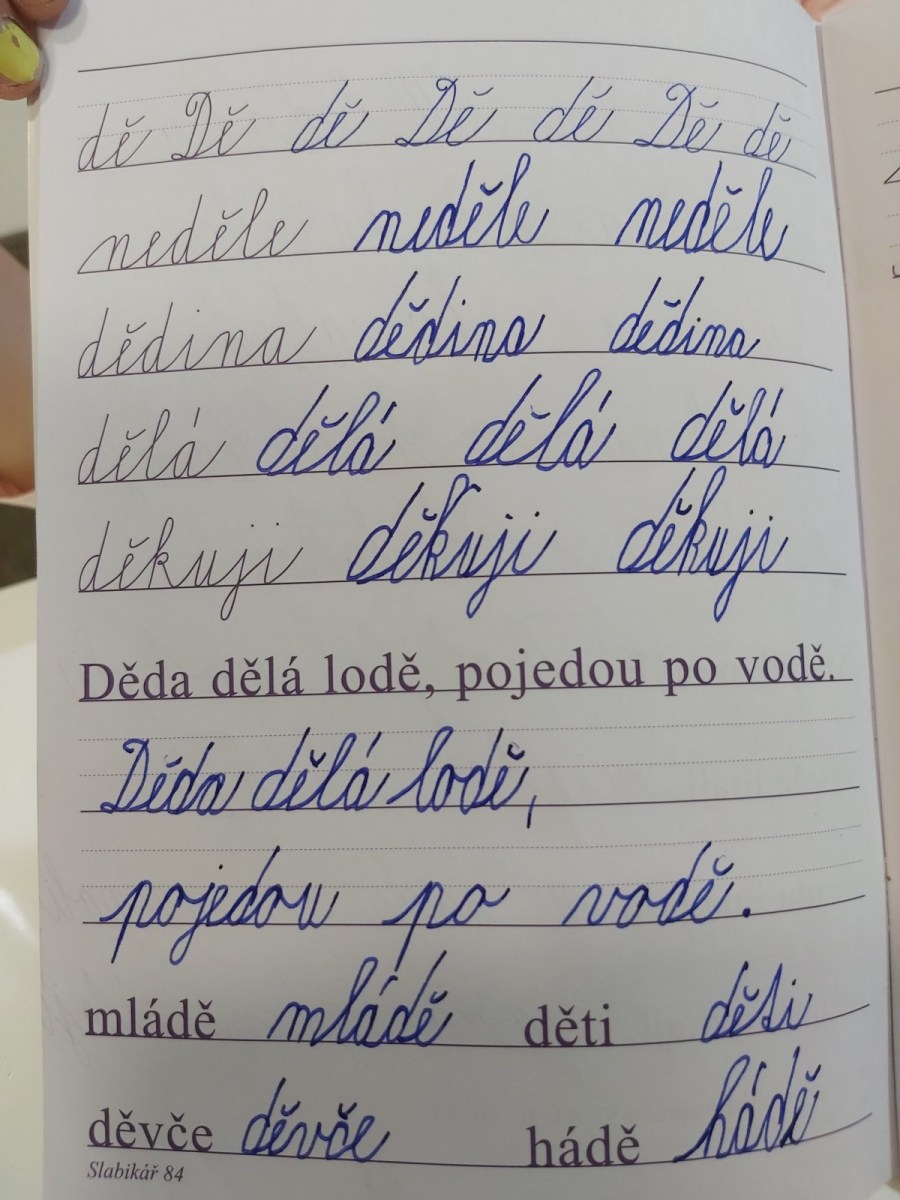 dě Dě dě Dě dě Dě dě
neděle neděle neděle
dědina dědina dědina
dělá dělá dělá dělá
děkuji děkuji děkuji
Děda dělá lodě, pojedou po vodě.
Děda dělá lodě,
pojedou po vodě.
mládě mládě děti děti
děvče děvče hádě hádě
Slabikář 84